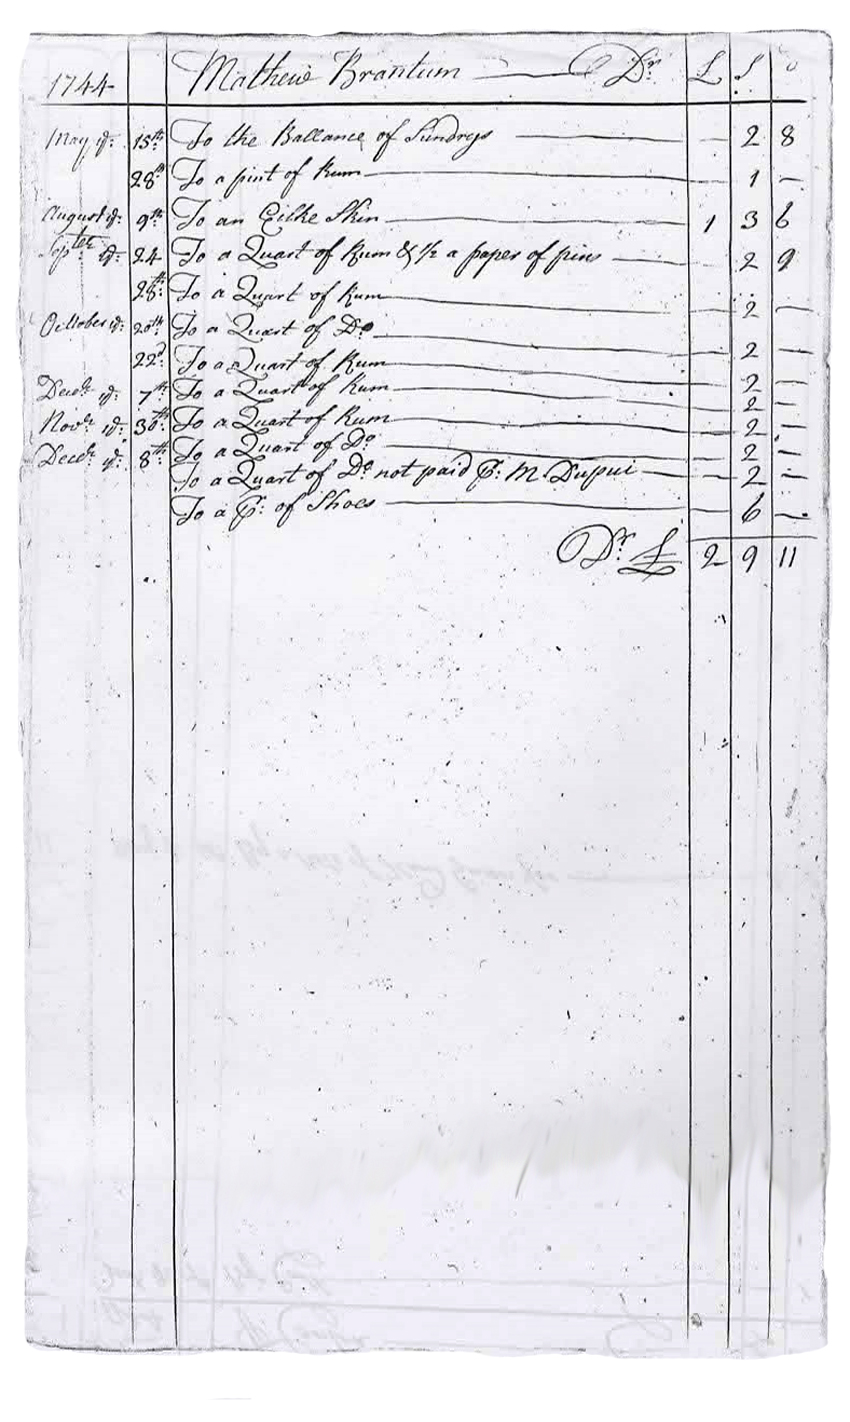 1744 Mathew Brantum Dr £ S D
May ye 15th To the Ballance of Sundrys — 2 8
28th To a pint of Rum — 1 —
August ye 9th To an Eilke Skin — 1 3 6
Septer ye 24 To a Quart of Rum & 1/2 a paper of pins — 2 9
28th To a Quart of Rum — 2 —
October ye 20th To a Quart of Do — 2 —
22d To a Quart of Rum — 2 —
Decer ye 7th To a Quart of Rum — 2 —
Novr ye 30th To a Quart of Rum — 2 —
Decer ye 8th To a Quart of Do — 2 —
To a Quart of Do not paid P: M. Dupui — 2 —
To a P: of Shoes — 6 —
Dr £ 2 9 11